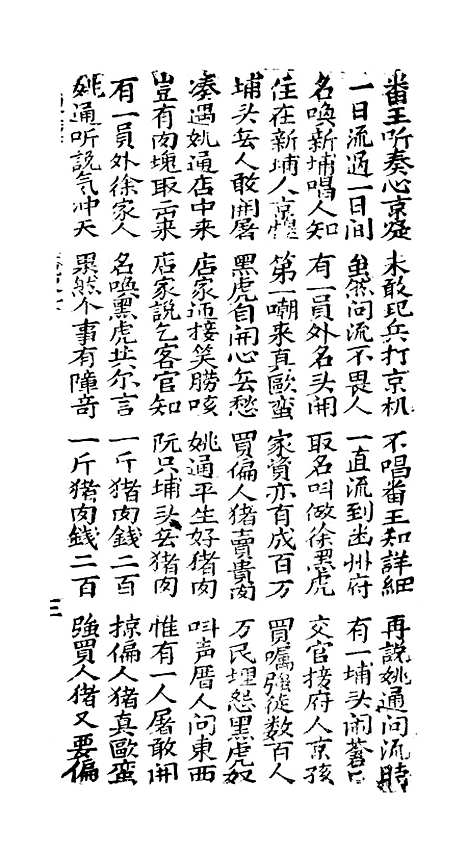 番王听奏心京凝 未敢玘兵打京机 不唱番王知詳細 再說姚通问流時
一日流过一日间 虽然问流不畏人 一直流到幽州府 有一埔头闹蒼
名喚新埔唱人知 有一員外名头開 取名叫做徐黑虎 交官接府人京孩
住在新埔人京惶 第一嘲来真歐蛮 家資亦有成百万 買嘱强徒数百人
埔头无人敢開屠 黑虎自開心无愁 買偏人猪賣貴肉 万民埋怨黑虎奴
凑遇姚通店中来 店家迊接笑朥咳 姚通平生好猪肉 叫声厝人问東西
豈有肉塊取云来 店家說乞客官知 阮只埔头无猪肉 惟有一人屠敢開
有一員外徐家人 名喚黑虎共尔言 一斤猪肉錢二百 掠偏人猪真歐蛮
姚通听説気冲天 果然个事有障奇 一斤猪肉錢二百 強買人猪又要偏
三